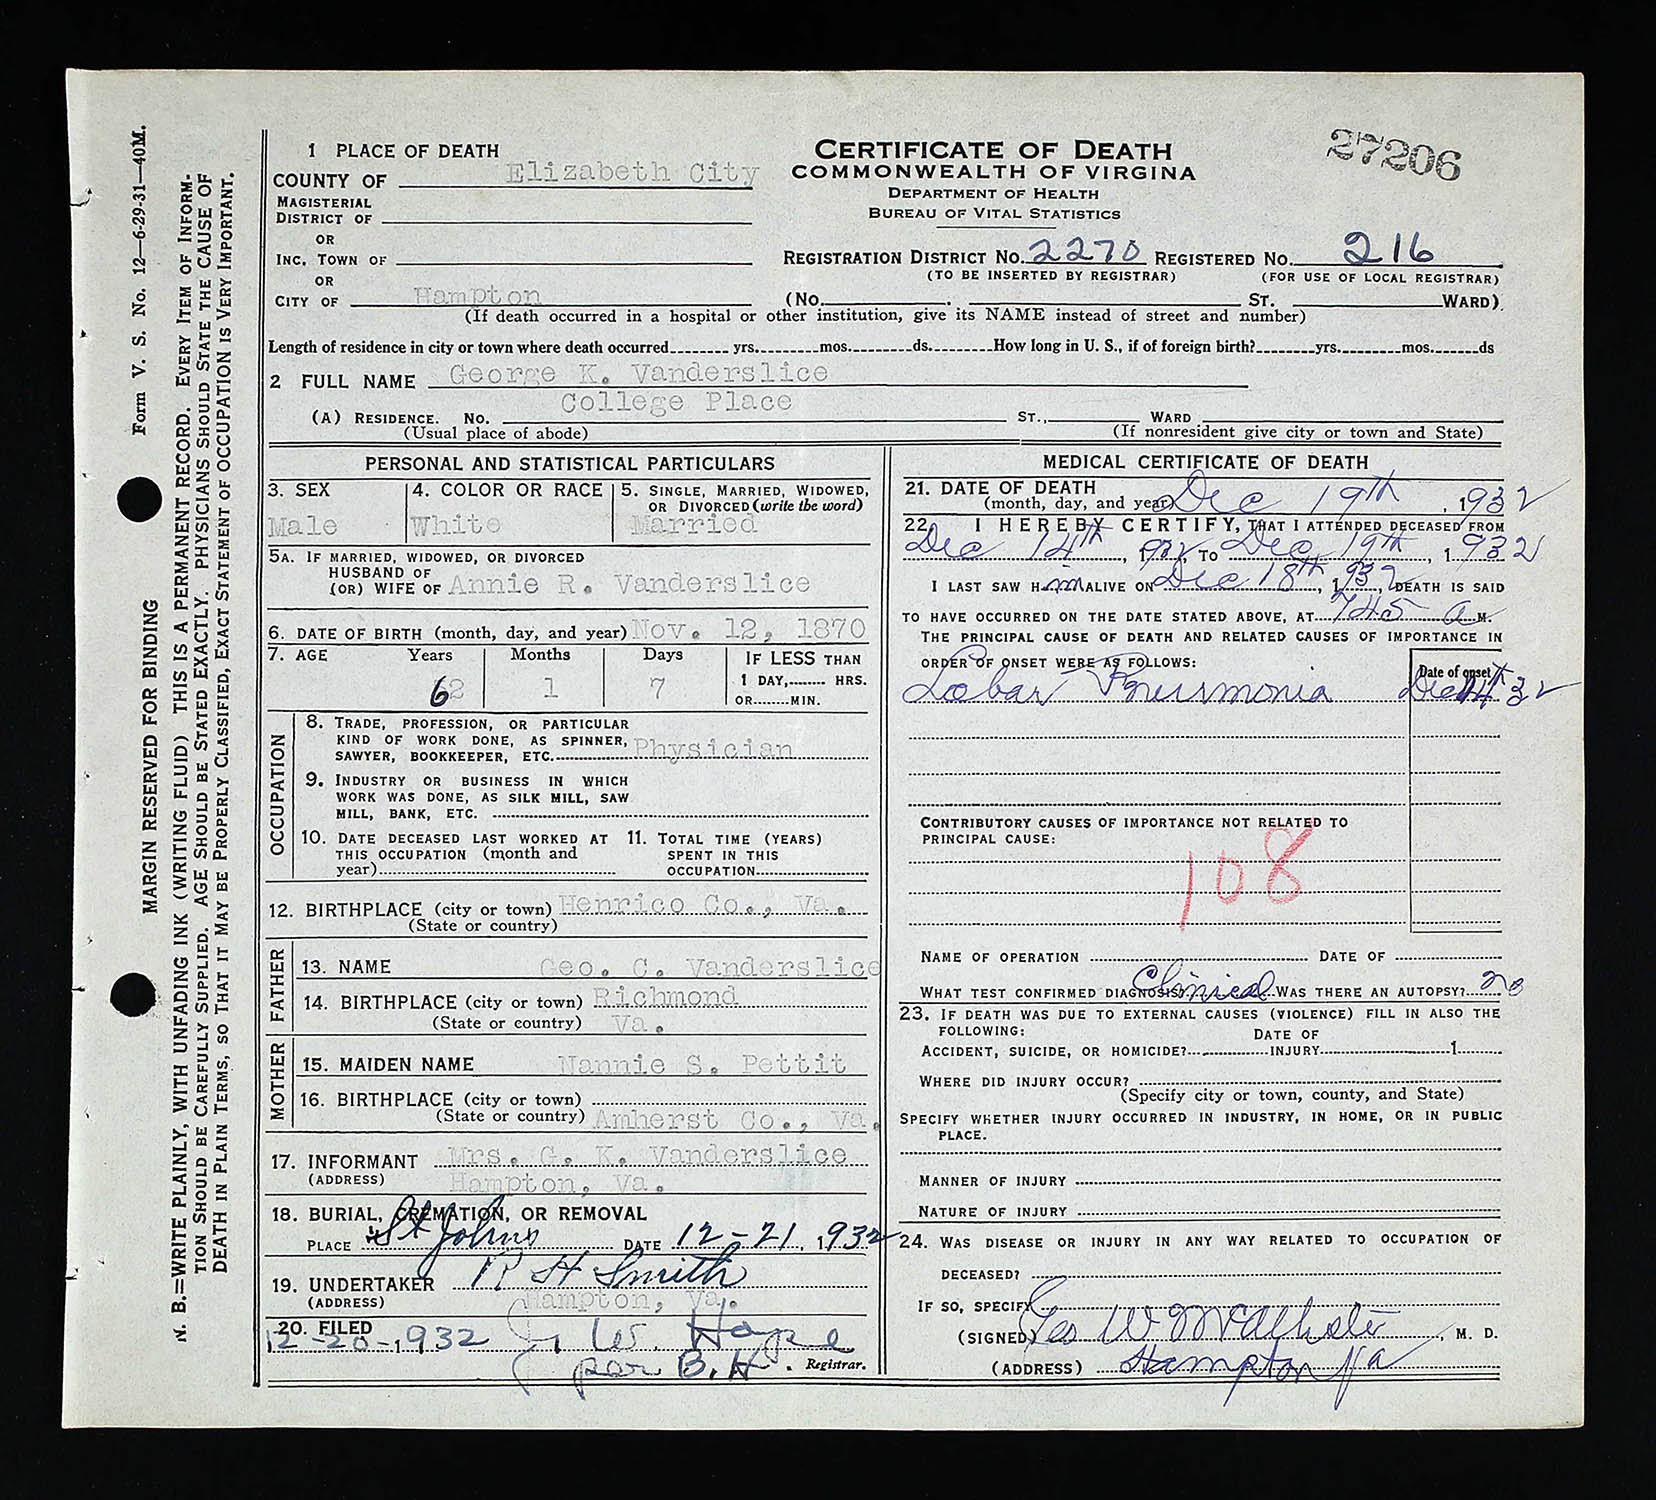 Form V. S. No. 12—6-29-31—40M.
MARGIN RESERVED FOR BINDING
N. B.=WRITE PLAINLY, WITH UNFADING INK (WRITING FLUID) THIS IS A PERMANENT RECORD. EVERY ITEM OF INFORM-
TION SHOULD BE CAREFULLY SUPPLIED. AGE SHOULD BE STATED EXACTLY. PHYSICIANS SHOULD STATE THE CAUSE OF
DEATH IN PLAIN TERMS, SO THAT IT MAY BE PROPERLY CLASSIFIED, EXACT STATEMENT OF OCCUPATION IS VERY IMPORTANT.
27206
CERTIFICATE OF DEATH
COMMONWEALTH OF VIRGINA
DEPARTMENT OF HEALTH
BUREAU OF VITAL STATISTICS
1 PLACE OF DEATH
COUNTY OF Elizabeth City
MAGISTERIAL
DISTRICT OF
OR
INC. TOWN OF
OR
CITY OF Hampton
REGISTRATION DISTRICT NO. 2270 REGISTERED NO. 216
(TO BE INSERTED BY REGISTRAR) (FOR USE OF LOCAL REGISTRAR)
(NO. ST. WARD)
(If death occurred in a hospital or other institution, give its NAME instead of street and number)
Length of residence in city or town where death occurred yrs. mos. ds. How long in U. S., if of foreign birth? yrs. mos. ds
2 FULL NAME George K. Vanderslice
(A) RESIDENCE. NO. College Place ST., WARD
(Usual place of abode) (If nonresident give city or town and State)
PERSONAL AND STATISTICAL PARTICULARS
3. SEX
Male
4. COLOR OR RACE
White
5. SINGLE, MARRIED, WIDOWED,
OR DIVORCED (write the word)
Married
5A. IF MARRIED, WIDOWED, OR DIVORCED
HUSBAND OF
(OR) WIFE OF Annie R. Vanderslice
6. DATE OF BIRTH (month, day, and year) Nov. 12, 1870
7. AGE Years Months Days IF LESS THAN
1 DAY, HRS.
OR MIN.
62 1 7
OCCUPATION
8. TRADE, PROFESSION, OR PARTICULAR
KIND OF WORK DONE, AS SPINNER,
SAWYER, BOOKKEEPER, ETC. Physician
9. INDUSTRY OR BUSINESS IN WHICH
WORK WAS DONE, AS SILK MILL, SAW
MILL, BANK, ETC.
10. DATE DECEASED LAST WORKED AT
THIS OCCUPATION (month and
year)
11. TOTAL TIME (YEARS)
SPENT IN THIS
OCCUPATION
12. BIRTHPLACE (city or town) Henrico Co., Va.
(State or country)
FATHER
13. NAME Geo. C. Vanderslice
14. BIRTHPLACE (city or town) Richmond
(State or country) Va.
MOTHER
15. MAIDEN NAME Nannie S. Pettit
16. BIRTHPLACE (city or town)
(State or country) Amherst Co., Va.
17. INFORMANT Mrs. G. K. Vanderslice
(ADDRESS) Hampton, Va.
18. BURIAL, CREMATION, OR REMOVAL
PLACE St Johns DATE 12-21, 1932
19. UNDERTAKER R H Smith
(ADDRESS) Hampton, Va.
20. FILED
12-20-1932 J. W. Hope
per B. H. Registrar.
MEDICAL CERTIFICATE OF DEATH
21. DATE OF DEATH
(month, day, and year) Dec 19th, 1932
22. I HEREBY CERTIFY, THAT I ATTENDED DECEASED FROM
Dec 14th, 1932 TO Dec 19th, 1932
I LAST SAW HIM ALIVE ON Dec 18th, 1932, DEATH IS SAID
TO HAVE OCCURRED ON THE DATE STATED ABOVE, AT 745 a M.
THE PRINCIPAL CAUSE OF DEATH AND RELATED CAUSES OF IMPORTANCE IN
ORDER OF ONSET WERE AS FOLLOWS: Date of onset
Lobar Pneumonia Dec 14th 32
CONTRIBUTORY CAUSES OF IMPORTANCE NOT RELATED TO
PRINCIPAL CAUSE:
108
NAME OF OPERATION DATE OF
WHAT TEST CONFIRMED DIAGNOSIS? Clinical WAS THERE AN AUTOPSY? no
23. IF DEATH WAS DUE TO EXTERNAL CAUSES (VIOLENCE) FILL IN ALSO THE
FOLLOWING: DATE OF
ACCIDENT, SUICIDE, OR HOMICIDE? INJURY 1
WHERE DID INJURY OCCUR?
(Specify city or town, county, and State)
SPECIFY WHETHER INJURY OCCURRED IN INDUSTRY, IN HOME, OR IN PUBLIC
PLACE.
MANNER OF INJURY
NATURE OF INJURY
24. WAS DISEASE OR INJURY IN ANY WAY RELATED TO OCCUPATION OF
DECEASED?
IF SO, SPECIFY
(SIGNED) Geo W McAllister, M. D.
(ADDRESS) Hampton Va